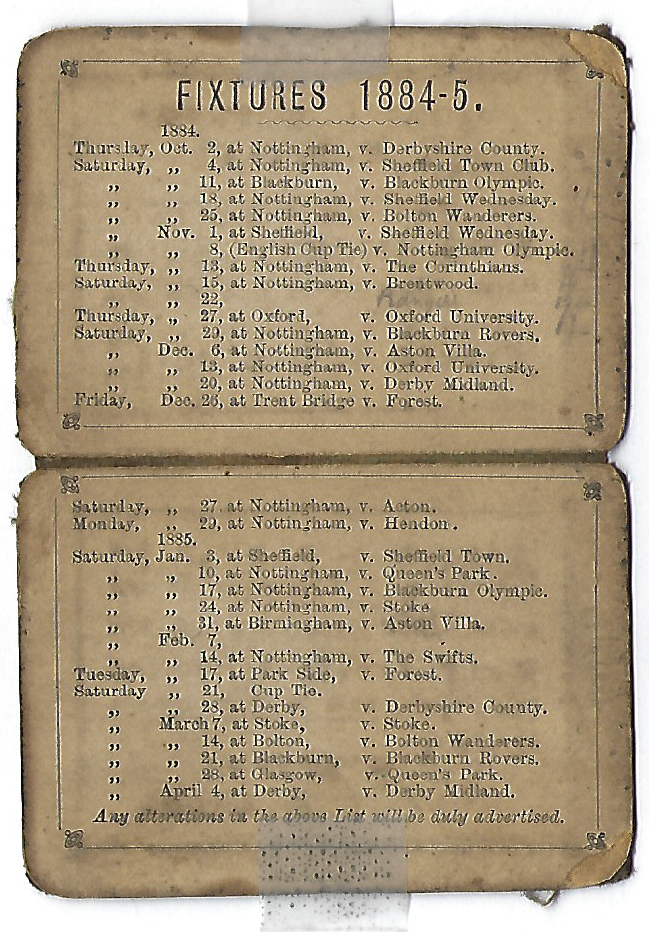 FIXTURES 1884-5.
1884.
Thursday, Oct. 2, at Nottingham, v. Derbyshire County.
Saturday, „ 4, at Nottingham, v. Sheffield Town Club.
„ „ 11, at Blackburn, v. Blackburn Olympic.
„ „ 18, at Nottingham, v. Sheffield Wednesday.
„ „ 25, at Nottingham, v. Bolton Wanderers.
„ Nov. 1, at Sheffield, v. Sheffield Wednesday.
„ „ 8, (English Cup Tie) v. Nottingham Olympic.
Thursday, „ 13, at Nottingham, v. The Corinthians.
Saturday, „ 15, at Nottingham, v. Brentwood.
„ „ 22,
Thursday, „ 27, at Oxford, v. Oxford University.
Saturday, „ 29, at Nottingham, v. Blackburn Rovers.
„ Dec. 6, at Nottingham, v. Aston Villa.
„ „ 13, at Nottingham, v. Oxford University.
„ „ 20, at Nottingham, v. Derby Midland.
Friday, Dec. 26, at Trent Bridge v. Forest.
Saturday, „ 27, at Nottingham, v. Acton.
Monday, „ 29, at Nottingham, v. Hendon.
1885.
Saturday, Jan. 3, at Sheffield, v. Sheffield Town.
„ „ 10, at Nottingham, v. Queen's Park.
„ „ 17, at Nottingham, v. Blackburn Olympic.
„ „ 24, at Nottingham, v. Stoke
„ „ 31, at Birmingham, v. Aston Villa.
„ Feb. 7,
„ „ 14, at Nottingham, v. The Swifts.
Tuesday, „ 17, at Park Side, v. Forest.
Saturday „ 21, Cup Tie.
„ „ 28, at Derby, v. Derbyshire County.
„ March 7, at Stoke, v. Stoke.
„ „ 14, at Bolton, v. Bolton Wanderers.
„ „ 21, at Blackburn, v. Blackburn Rovers.
„ „ 28, at Glasgow, v. Queen's Park.
„ April 4, at Derby, v. Derby Midland.
Any alterations in the above List will be duly advertised.